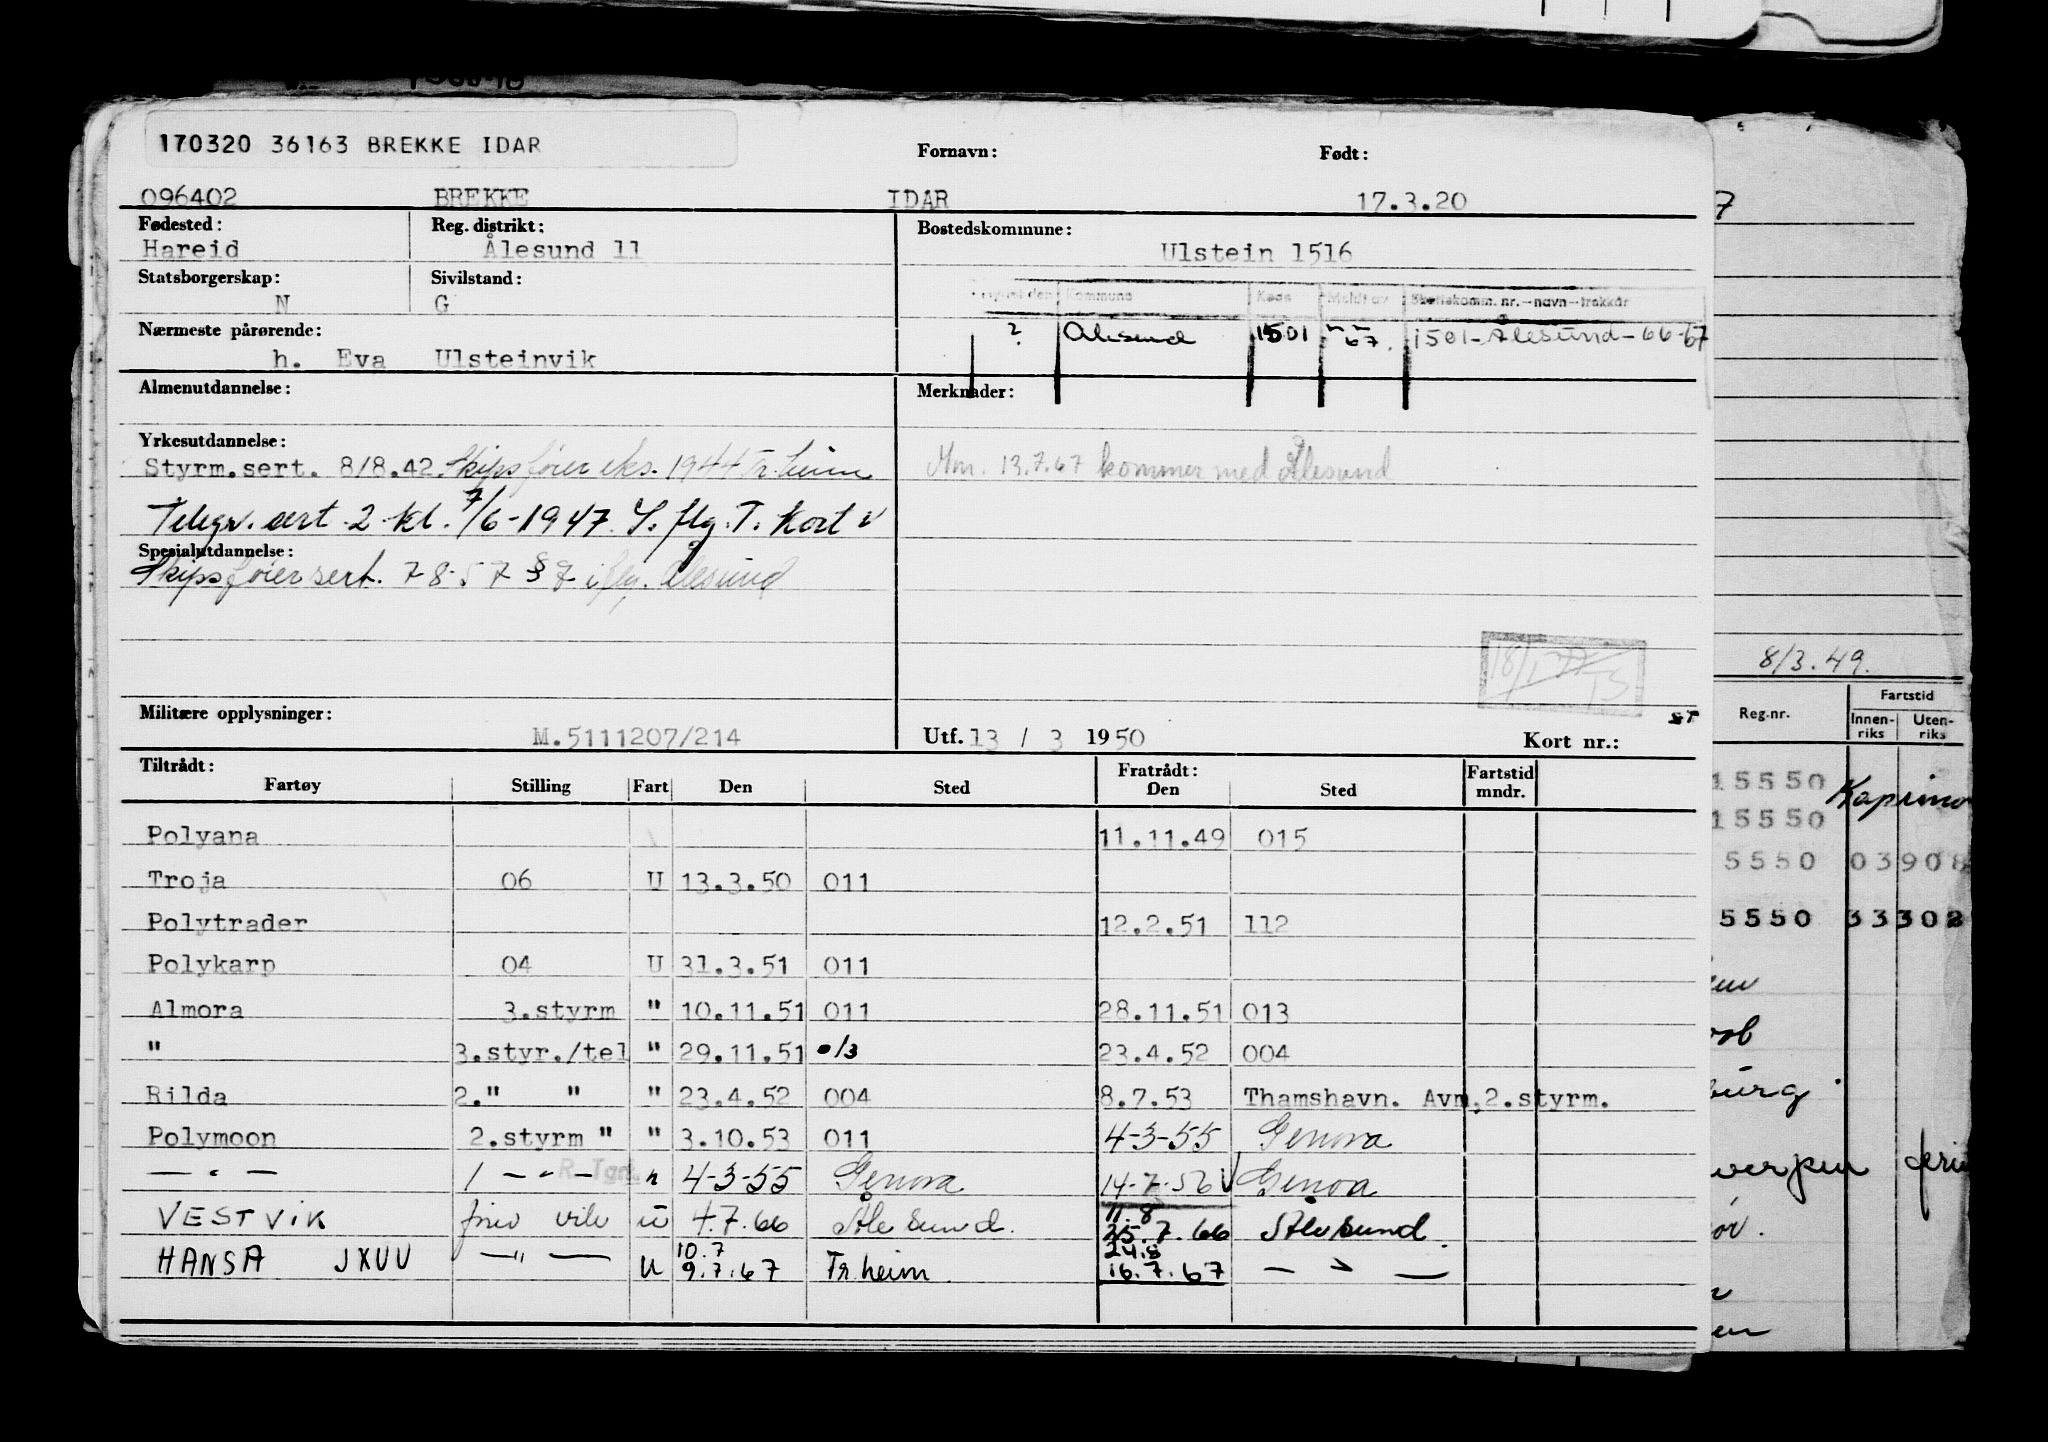 170320 36163 BREKKE IDAR
Fornavn: Født:
096402 BREKKE IDAR 17.3.20
Fødested: Reg. distrikt: Bostedskommune:
Hareid Ålesund 11 Ulstein 1516
Statsborgerskap: Sivilstand:
N G
Kommune Kode Meldt av Skattekomm. nr.-navn-trekkår
Nærmeste pårørende: ? Ålesund 1501 67. 1501-Ålesund-66-67
h. Eva Ulsteinvik
Almenutdannelse: Merknader:
Yrkesutdannelse:
Styrm.sert. 8/8.42. Skipsfører eks. 1944 Tr.heim
Mm. 13.7.67 kommer med Ålesund
Telegr. sert. 2. kl. 7/6-1947. S. flg. T. Kort
Spesialutdannelse:
Skipsførersert. 7 8-57 § 7 iflg. Ålesund
18/1 77 TS
8/3.49.
Militære opplysninger: ST
M.5111207/214 Utf. 13 / 3 1950 Kort nr.:
Reg.nr. Fartstid
Innen-riks Uten-riks
Tiltrådt: Fratrådt: Fartstid
Fartøy Stilling Fart Den Sted Den Sted mndr.
Polyana 11.11.49 015
Troja 06 U 13.3.50 011
Polytrader 12.2.51 112
Polykarp 04 U 31.3.51 011
Almora 3.styrm " 10.11.51 011 28.11.51 013
" 3.styr./tel " 29.11.51 013 23.4.52 004
Rilda 2." " " 23.4.52 004 8.7.53 Thamshavn. Avm.2.styrm.
Polymoon 2.styrm " " 3.10.53 011 4-3-55 Genova
— " — 1 — " — R.Tgrf. " 4-3-55 Genova 14-7-56 Genoa
VESTVIK u 4.7.66 Ålesund. 11.8 25.7.66 Ålesund.
HANSA JXUU — " — U 10.7 9.7.67 Tr.heim 24.8 16.7.67 — " —
15550
15550
5550 03908
5550 33302